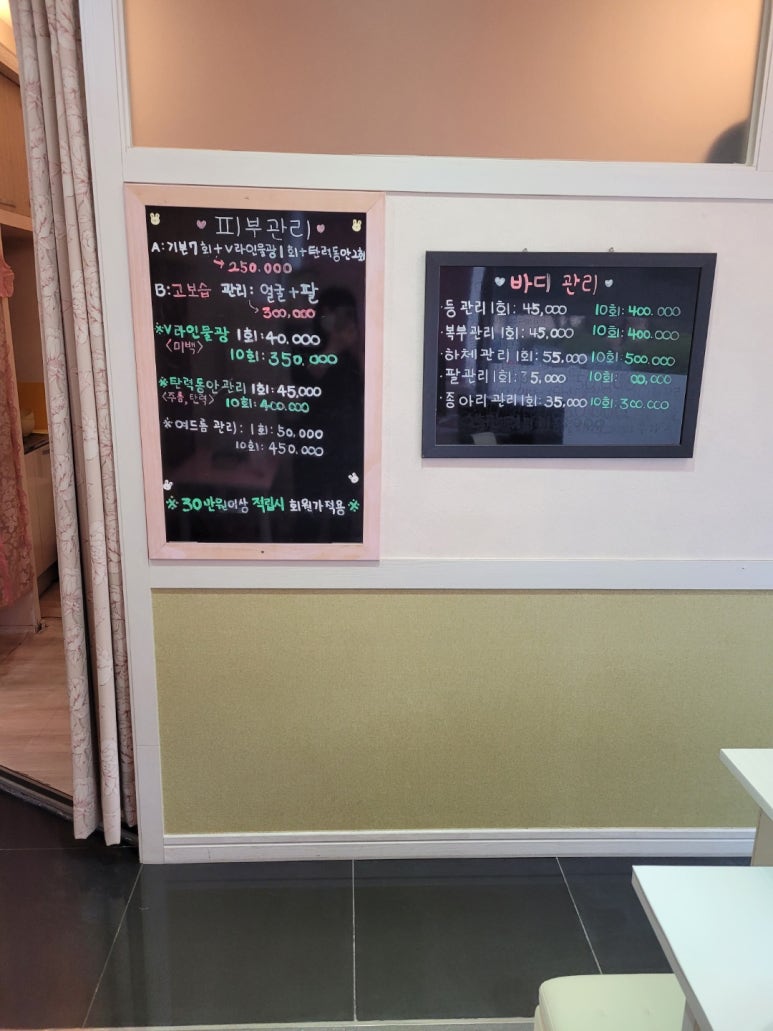 피부관리
A: 기본7회+V라인물광1회+탄력동안2회
250.000
B: 고보습 관리: 얼굴+팔
300,000
※V라인물광 1회: 40.000
<미백>
10회: 350.000
※탄력동안관리 1회: 45,000
<주름, 탄력> 10회: 400.000
※여드름 관리: 1회: 50,000
10회: 450.000
※30만원이상 적립시 회원가적용※
바디 관리
·등관리 1회: 45,000 10회: 400.000
·복부관리 1회: 45,000 10회: 400.000
·하체관리 1회: 55,000 10회: 500.000
·팔관리 1회: 35,000 10회: 00,000
·종아리 관리 1회: 35,000 10회: 300.000